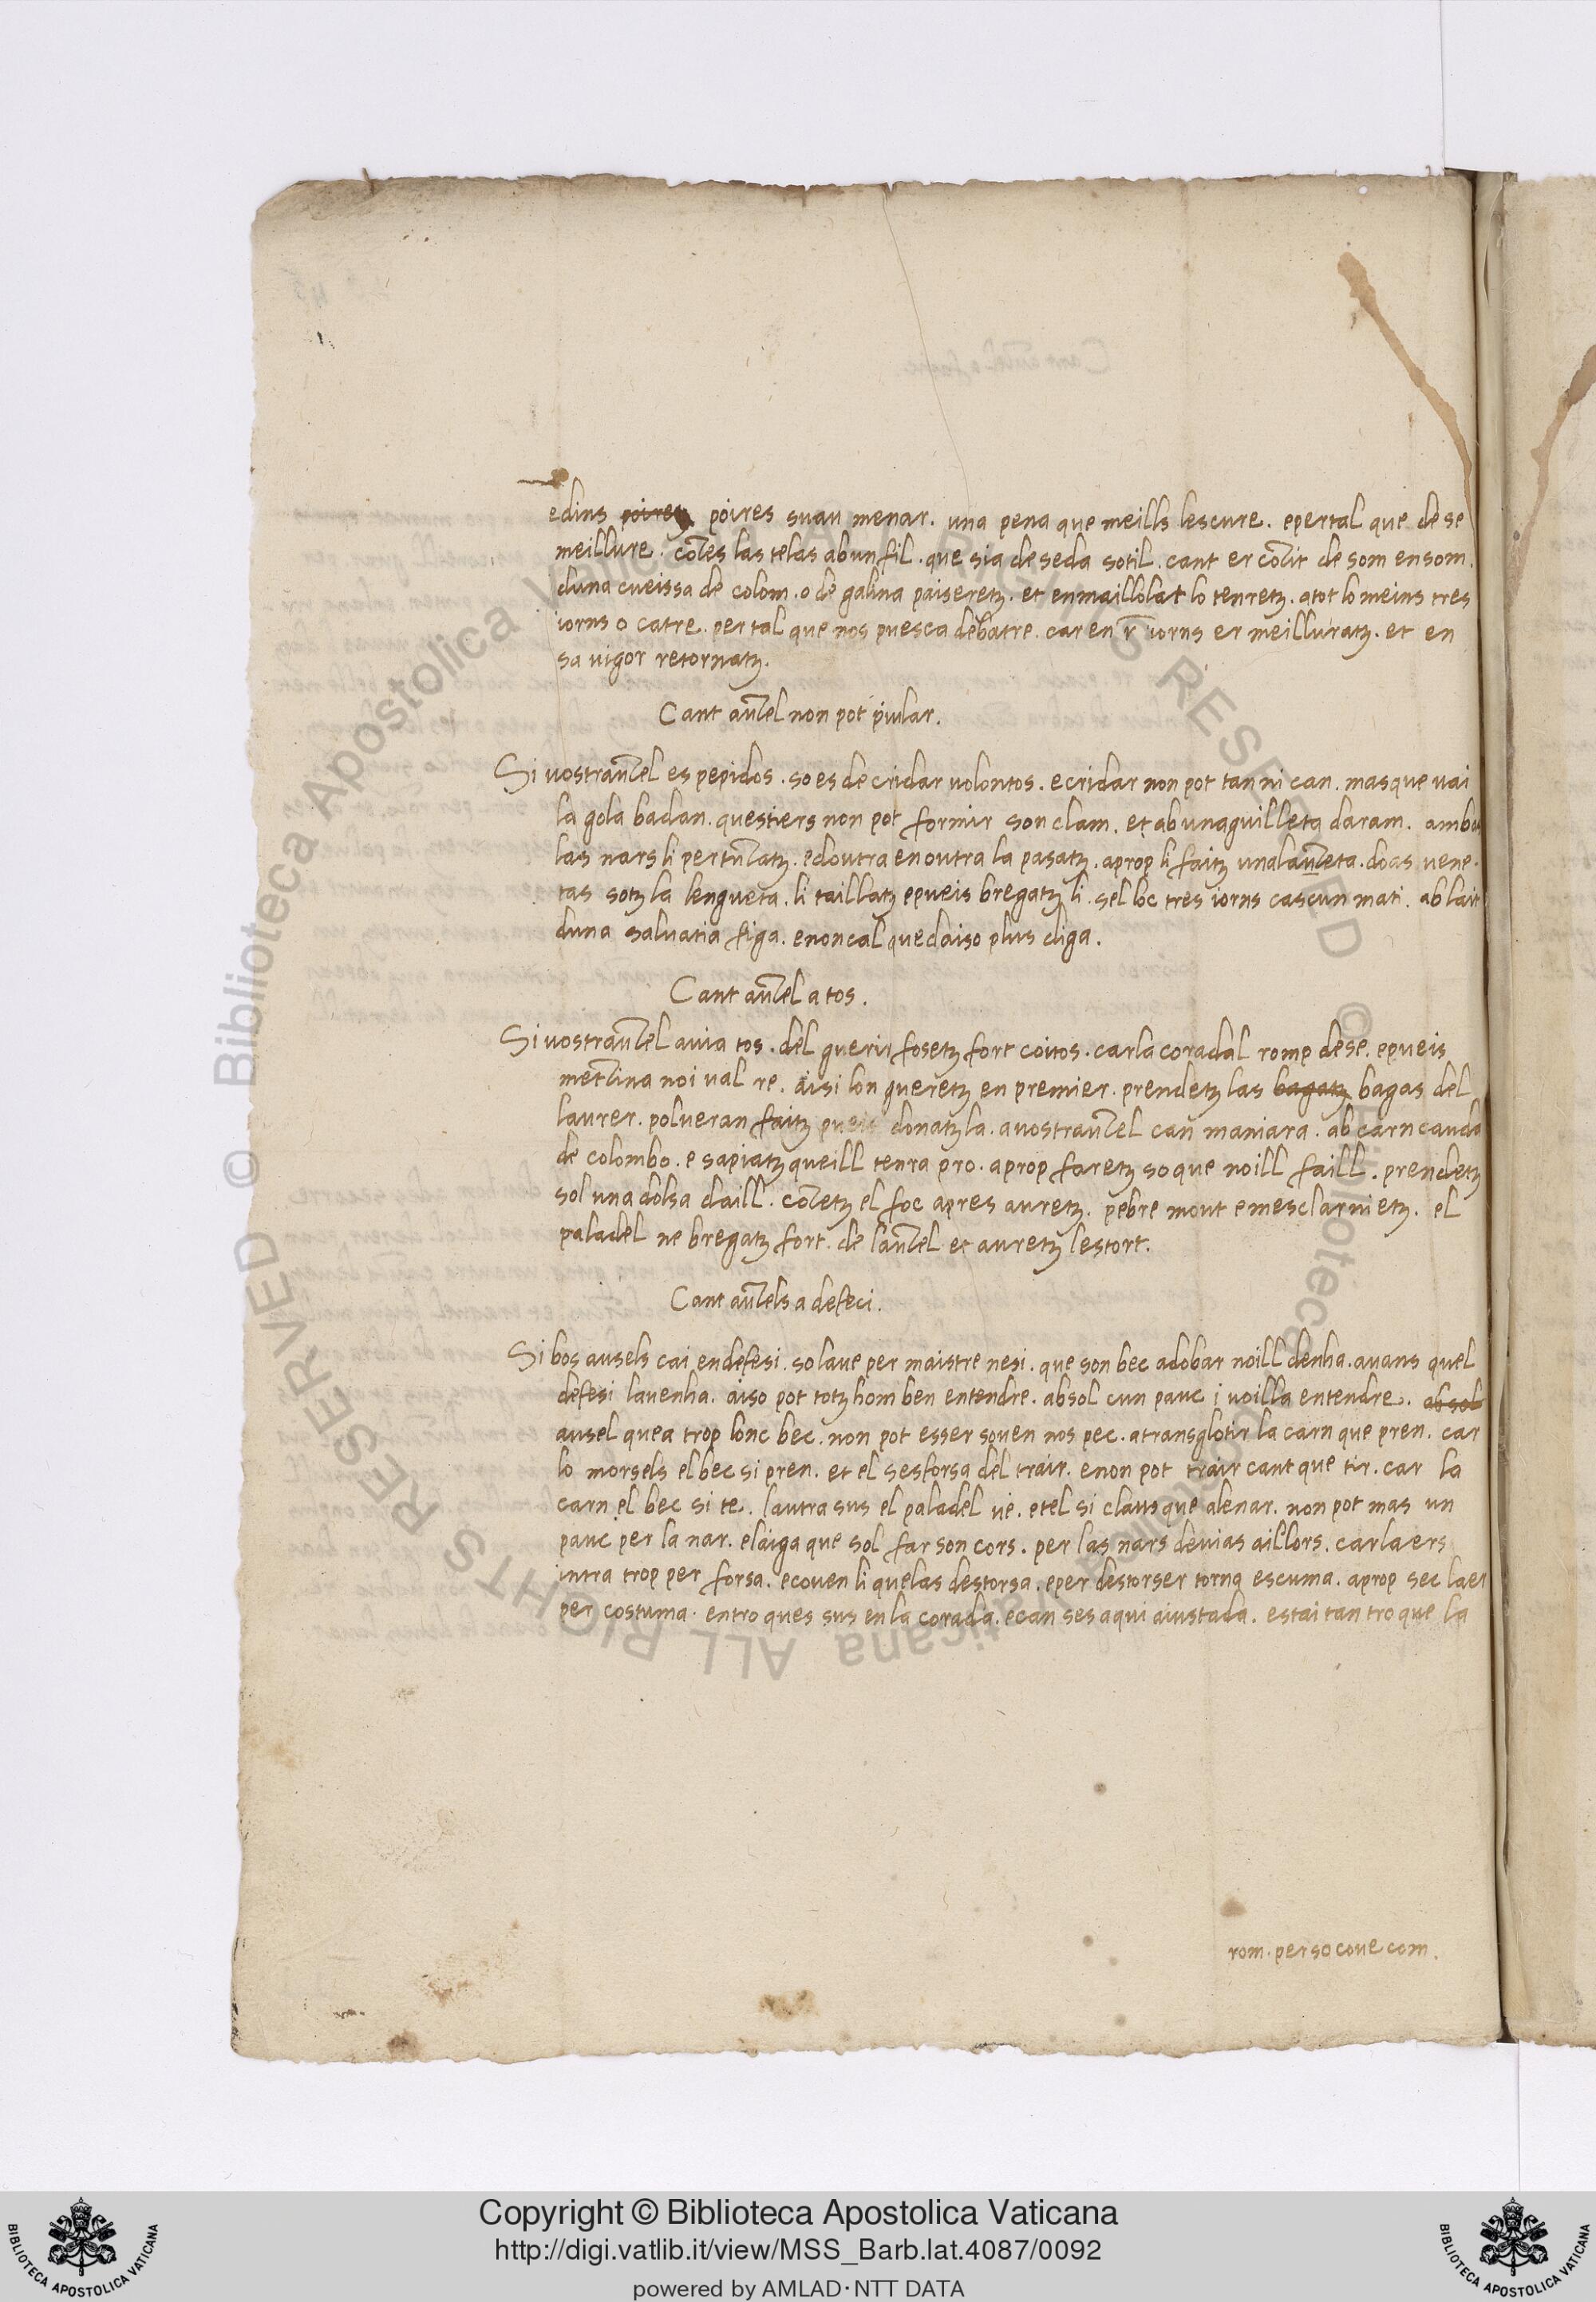 edins poires poires suau menar. una pena que meills lescure. epertal que de se
meillure. côzes las telas abun fil. que sia de seda sotil. cant er côzit de som en som.
duna cueissa de colom. o de galina paiseretz. et enmaillolat lo tenretz. atot lo meins tres
iorns o catre. per tal que nos puesca debatre. car en iorns er meilluratz. et en
sa vigor retornatz.
Cant auzel non pot piular.
Si vostrauzel es pepidos. so es de cridar volontos. e cridar non pot tan ni can. mas que vai
la gola badan. questiers non pot fornir son clam. et ab unaguilleta daram. ambas
las nars li pertuzatz. edoutra en outra la pasatz. aprop li faitz unalauzeta. doas vene
tas sotz la lengueta. li taillatz epueis bregatz li. sel loc tres iorns cascun mati. ab lait
duna salvatia figa. e non cal que daiso plus diga.
Cant auzel a tos.
Si vostrauzel avia tos. del guerir fosetz fort coitos. car la coradal romp dese. epueis
mezina noi val re. aisi lon gueretz en premier. prendetz las bagatz bagas del
laurer. polveran faitz pueis donatz la. a vostrauzel can maniara. ab carn cauda
de colombo. e sapiatz queill tenra pro. aprop faretz so que noill faill. prendetz
sol una dolsa daill. cozetz el foc apres auretz. pebre mout e mesclarnietz. el
paladel ne bregatz fort. de lauzel et auretz lestort.
Cant auzels a defeci.
Si bos ausels cai en defesi. so lave per maistre nesi. que son bec adobar noill denha. avans quel
defesi lavenha. aiso pot totz hom ben entendre. ab sol cun pauc i voilla entendre. ab sol
ausel quea trop lonc bec. non pot esser soven nos pec. a transglotir la carn que pren. car
lo morsels el bec si pren. et el sesforsa del trair. e non pot trair cant que tir. car la
carn el bec si te. lautra sus el paladel ve. et el si claus que alenar. non pot mas un
pauc per la nar. el aiga que sol far son cors. per las nars devias aillors. car la ers
intra trop per forsa. ecoven li que las destorsa. eper destorser torna escuma. aprop sec laer
per costuma. entro ques sus en la corada. e can ses aqui aiustada. estai tan tro que la
rom. per so cove com.
Copyright © Biblioteca Apostolica Vaticana
http://digi.vatlib.it/view/MSS_Barb.lat.4087/0092
powered by AMLAD·NTT DATA